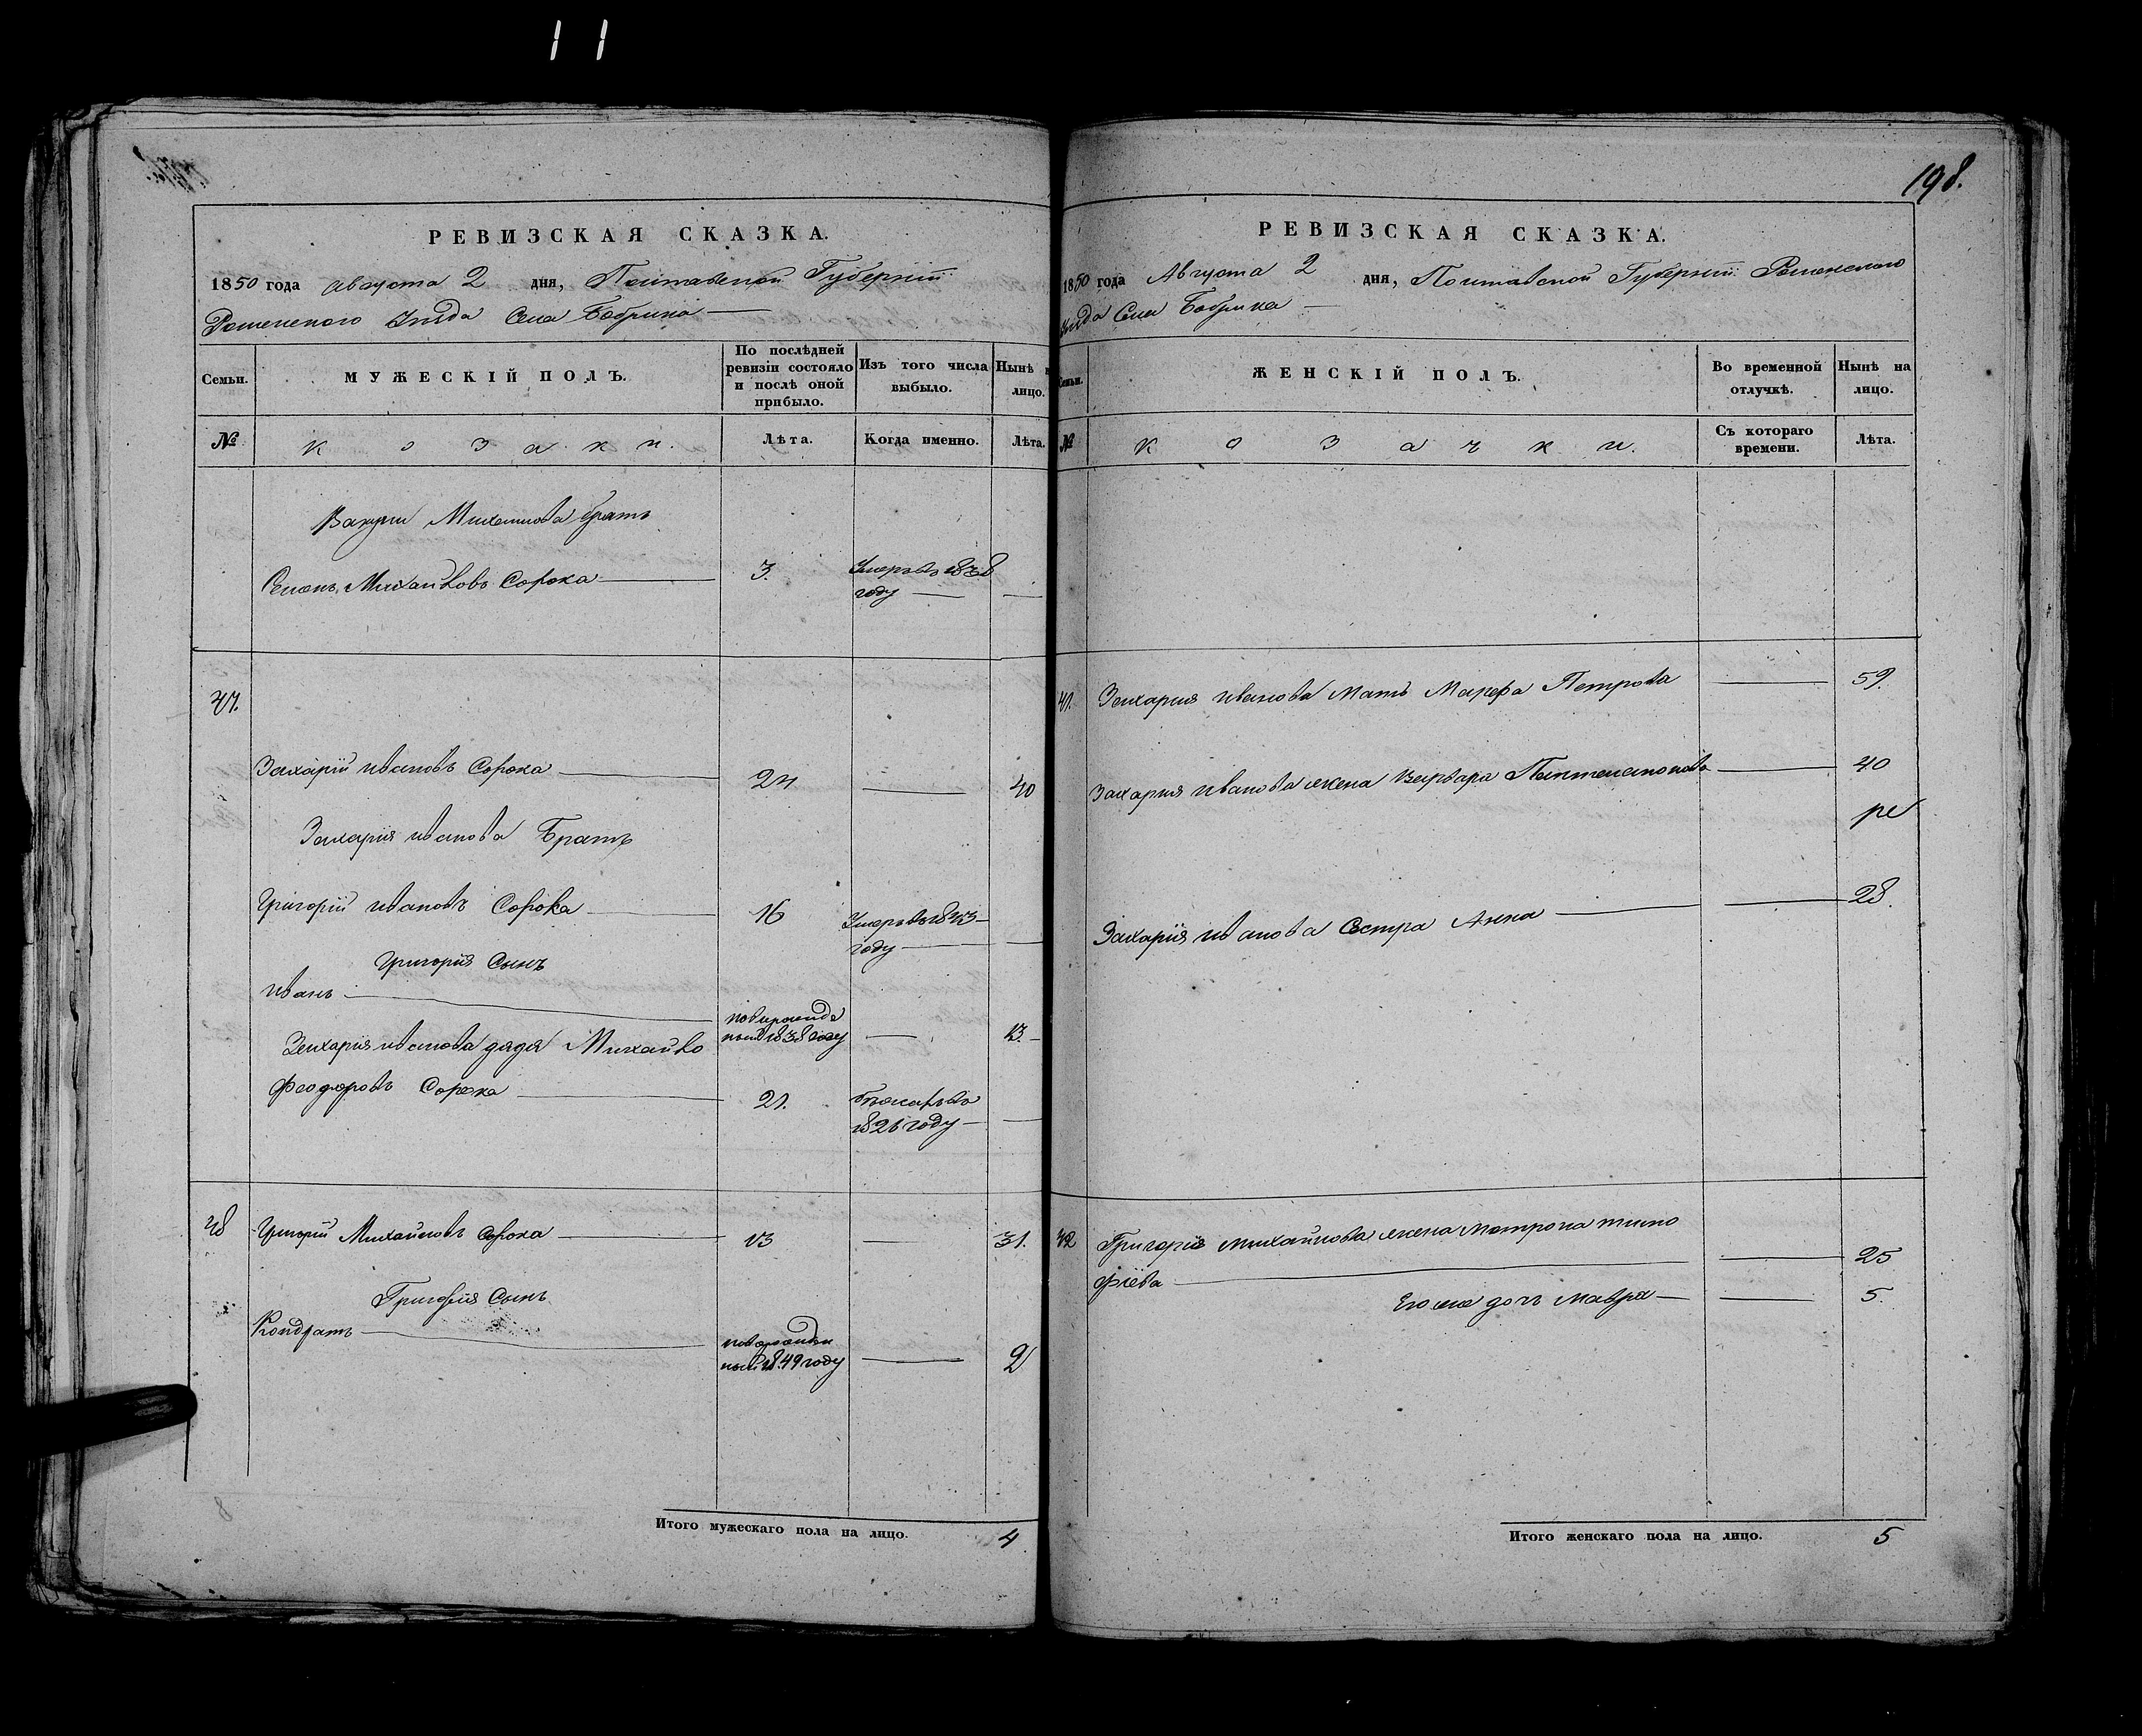 11
198.
РЕВИЗСКАЯ СКАЗКА.
1850 года Августа 2 дня, Полтавской Губернiи
Роменского Уезда Села Бобрика
Семьи.
МУЖЕСКІЙ ПОЛЪ.
По послѣдней ревизіи состояло и послѣ оной прибыло.
Изъ того числа выбыло.
Нынѣ на лицо.
№
Козаки.
Лѣта.
Когда именно.
Лѣта.
Михайлова братъ
Семенъ Михайловъ Сорока 3. Умеръ въ 1838
году
47.
Захарій Ивановъ Сорока 24 40
Захарія Иванова Братъ
Григорій Ивановъ Сорока 16 Умеръ въ 1843
году
Григорія Сынъ
Иванъ
году 13.
Захарія Иванова дядя Михайло
Феодоровъ Сорока 21.
году
48 Григорій Михайловъ Сорока 13 31.
Григорія Сынъ
Кондратъ
1849 году 2
Итого мужескаго пола на лицо. 4
РЕВИЗСКАЯ СКАЗКА.
1850 года Августа 2 дня, Полтавской Губернiи Роменского
Уезда Села Бобрика
Семьи.
ЖЕНСКІЙ ПОЛЪ.
Во временной отлучкѣ.
Нынѣ на лицо.
№
Козачки.
Съ котораго времени.
Лѣта.
Захарія Иванова Мать Марфа Петрова 59.
Захария Иванова жена Варвара Пантелимонова 40
Захарія Иванова Сестра Анна 28.
Григорія Михайлова жена Матрона Тимо
фіева 25
Его же дочь Мавра 5.
Итого женскаго пола на лицо. 5